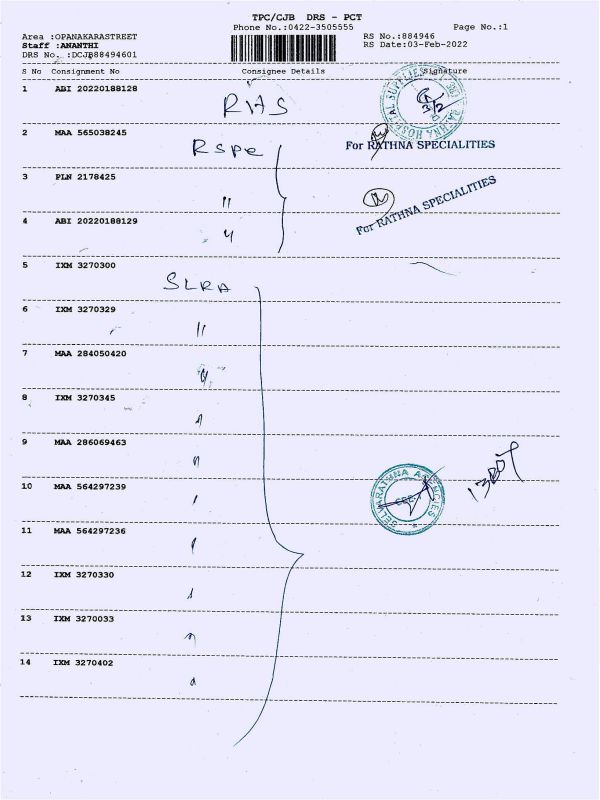 TPC/CJB DRS - PCT
Phone No.:0422-3505555 Page No.:1
Area :OPANAKARASTREET RS No.:884946
Staff :ANANTHI RS Date:03-Feb-2022
DRS No. :DCJB88494601
S No Consignment No Consignee Details Signature
1 ABI 20220188128
RHS
RATHNA HOSPITAL SUPPLIES
2 MAA 565038245
RSPe
For RATHNA SPECIALITIES
3 PLN 2178425
"
For RATHNA SPECIALITIES
4 ABI 20220188129
"
5 IXM 3270300
SLRA
6 IXM 3270329
"
7 MAA 284050420
"
8 IXM 3270345
"
9 MAA 286069463
"
10 MAA 564297239
SELVARATHNA AGENCIES
CBE-1
11 MAA 564297236
12 IXM 3270330
13 IXM 3270033
14 IXM 3270402